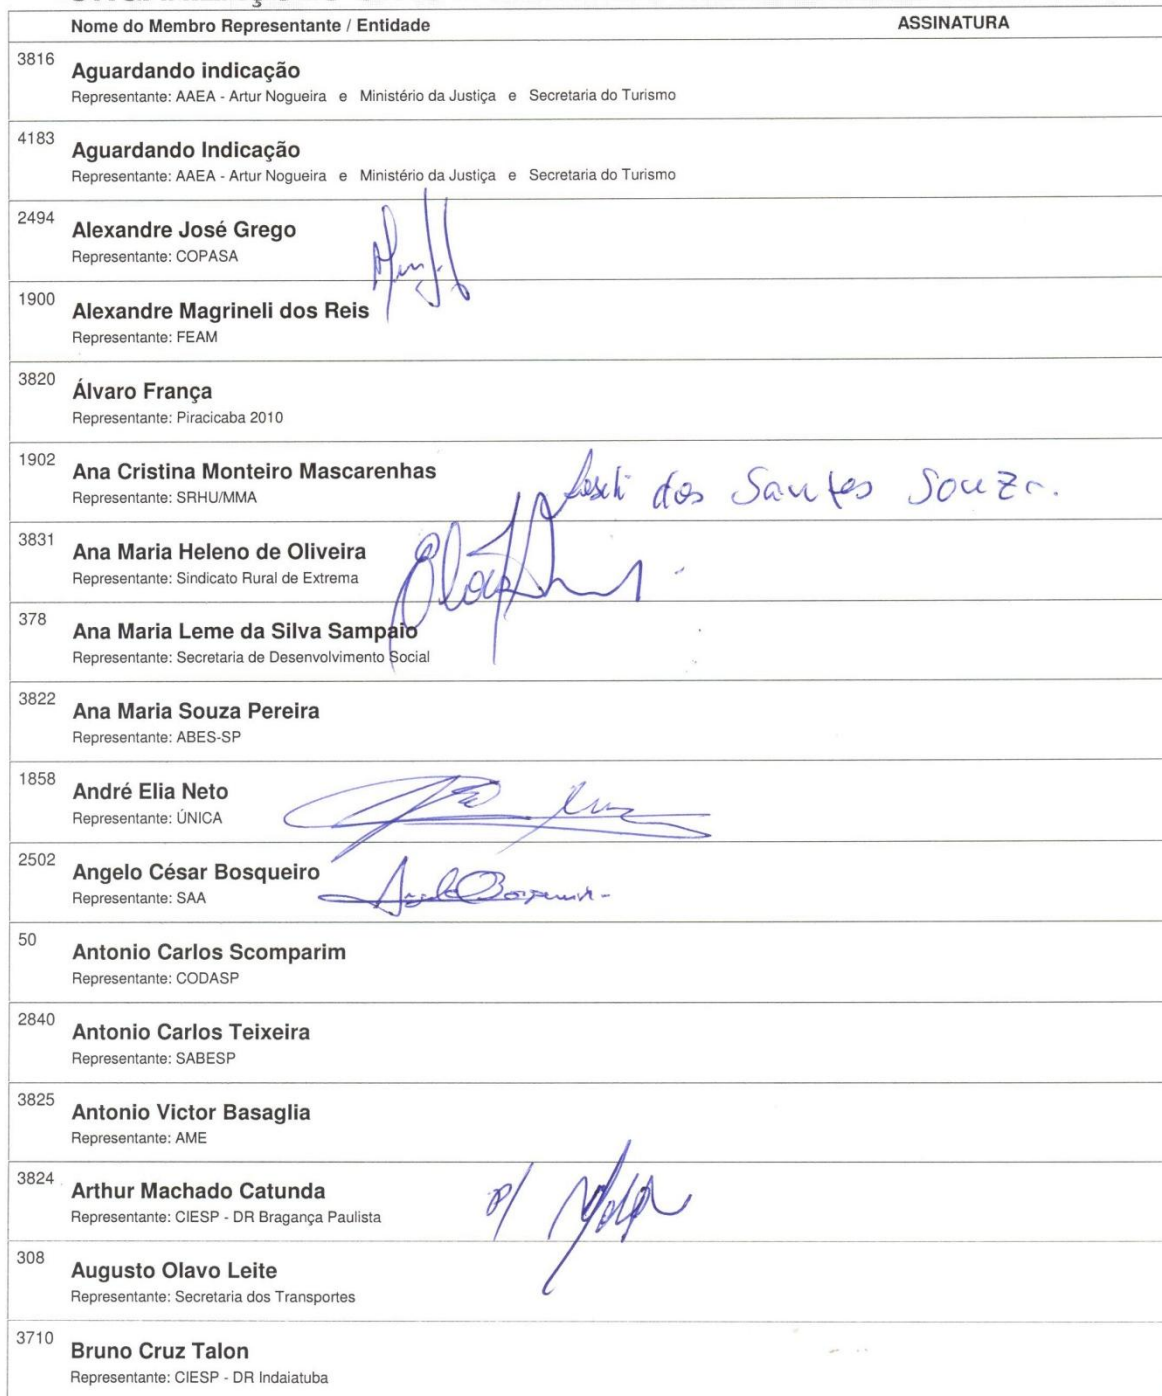 Nome do Membro Representante / Entidade ASSINATURA
3816
Aguardando indicação
Representante: AAEA - Artur Nogueira e Ministério da Justiça e Secretaria do Turismo
4183
Aguardando Indicação
Representante: AAEA - Artur Nogueira e Ministério da Justiça e Secretaria do Turismo
2494
Alexandre José Grego
Representante: COPASA
1900
Alexandre Magrineli dos Reis
Representante: FEAM
3820
Álvaro França
Representante: Piracicaba 2010
1902
Ana Cristina Monteiro Mascarenhas
Representante: SRHU/MMA
dos Santos Souza.
3831
Ana Maria Heleno de Oliveira
Representante: Sindicato Rural de Extrema
378
Ana Maria Leme da Silva Sampaio
Representante: Secretaria de Desenvolvimento Social
3822
Ana Maria Souza Pereira
Representante: ABES-SP
1858
André Elia Neto
Representante: ÚNICA
2502
Angelo César Bosqueiro
Representante: SAA
50
Antonio Carlos Scomparim
Representante: CODASP
2840
Antonio Carlos Teixeira
Representante: SABESP
3825
Antonio Victor Basaglia
Representante: AME
3824
Arthur Machado Catunda
Representante: CIESP - DR Bragança Paulista
p/
308
Augusto Olavo Leite
Representante: Secretaria dos Transportes
3710
Bruno Cruz Talon
Representante: CIESP - DR Indaiatuba